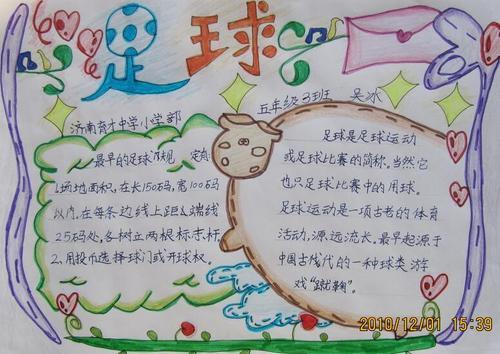 足球
济南育才中学小学部
五年级3班 吴冰
最早的足球 规定
1.场地面积，在长150码，宽100码
以内，在每条边线上距端线
25码处，各树立两根标志杆
2、用投币选择球门或开球权。
足球是足球运动
或足球比赛的简称。当然它
也只足球比赛中的用球。
足球运动是一项古老的体育
活动，源远流长。最早起源于
中国古代的一种球类游
戏"蹴鞠"。
2010/12/01 15:39